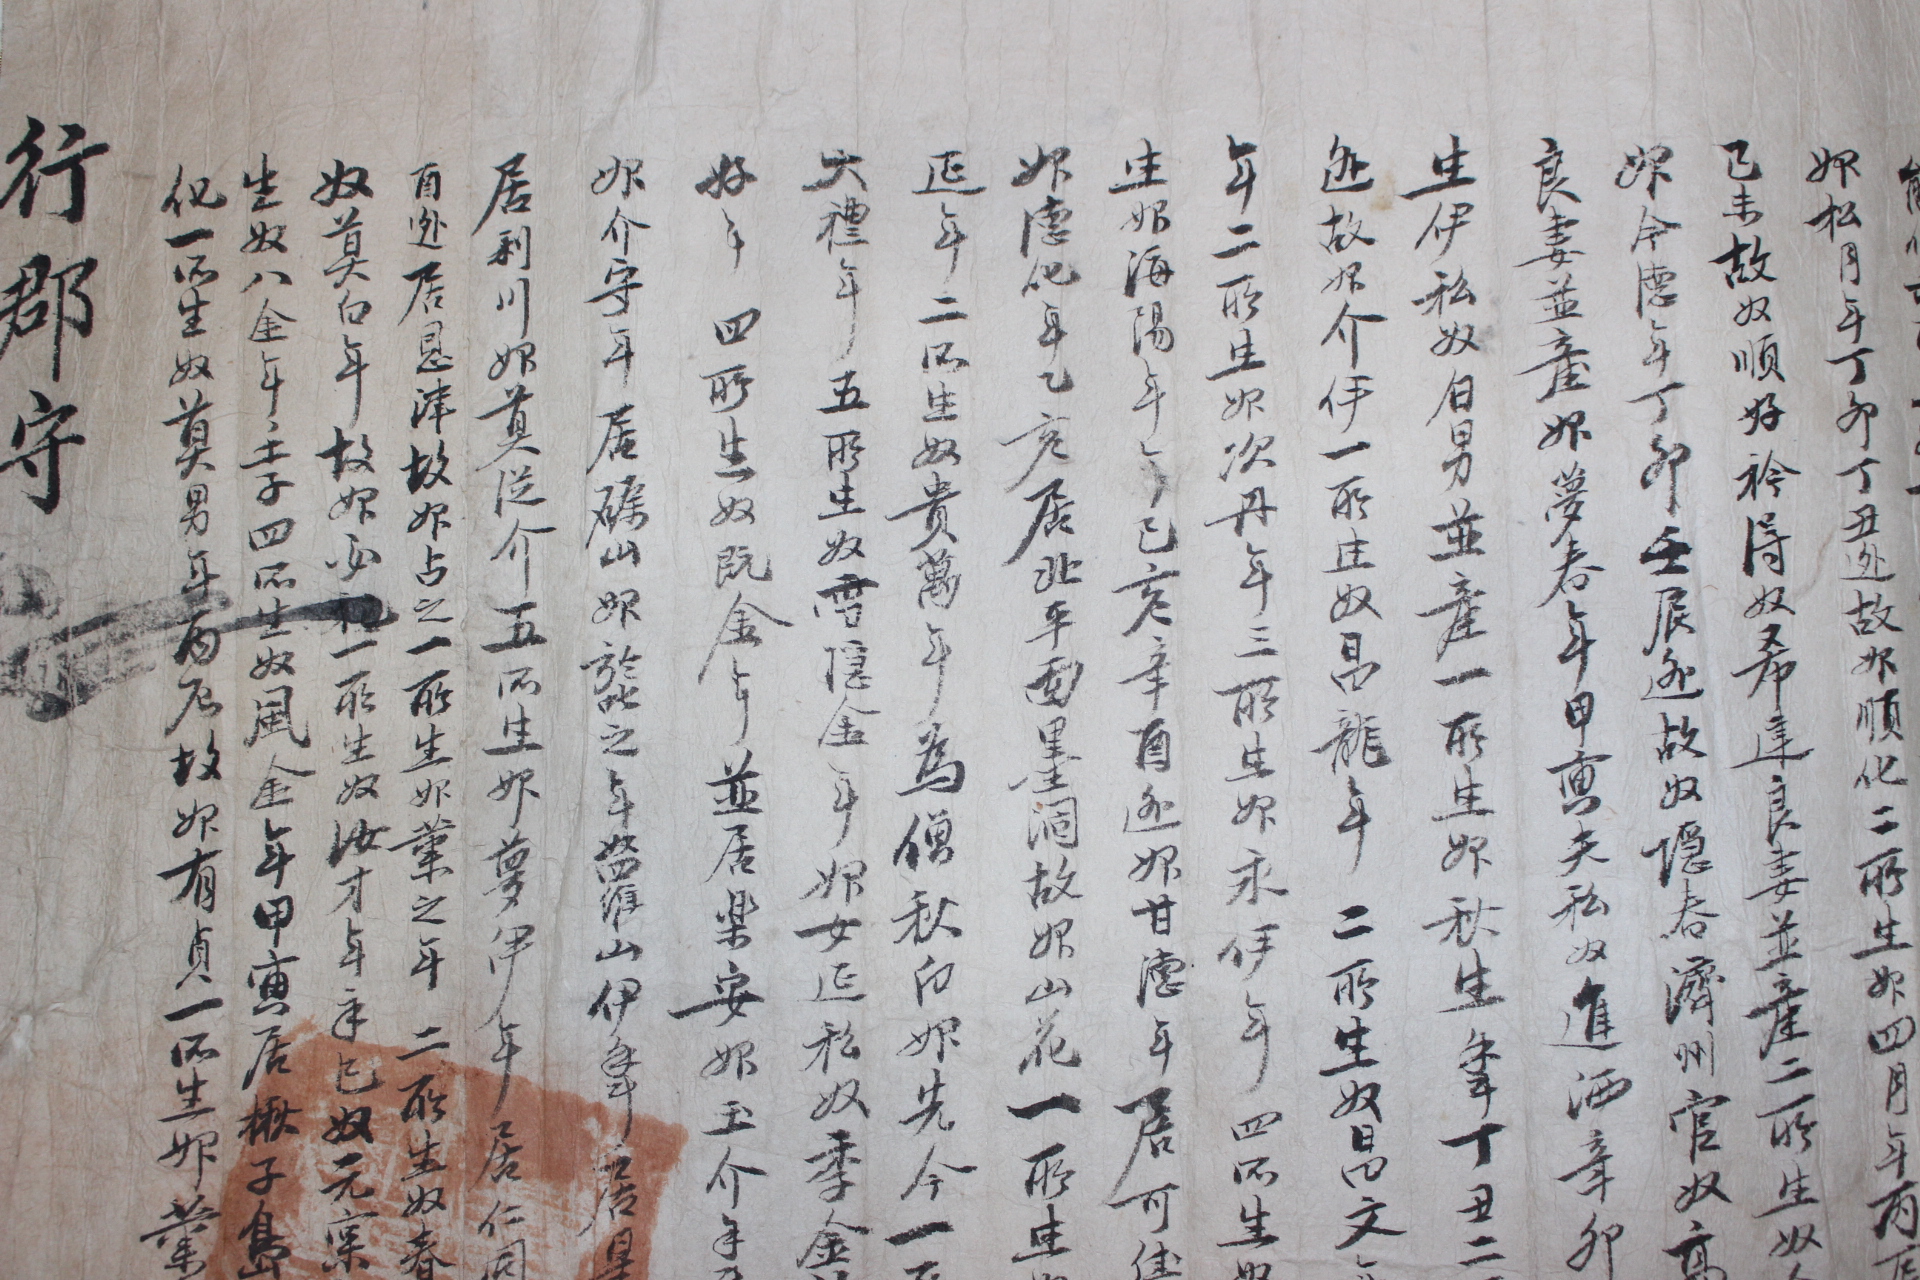 婢松月年丁卯丁丑逃故婢順化二所生婢四月年丙辰
己未故奴順好衿得奴希達良妻並産二所生奴
婢今德年丁卯壬辰逃故奴隱春濟州官奴高
良妻並産婢夢春年甲寅夫私奴進洒辛卯
生伊私奴日男並産一所生婢秋生年丁丑二
逃故婢介伊一所生奴昌龍年 二所生奴昌文
年二所生婢次丹年年三所生婢永伊年年四所生
生婢海陽年年己亥辛酉逃婢甘德年居可佳
婢德化年乙亥居北平面墨洞故婢山花一所生
延年二所生奴貴萬年為僧秋白婢先今一
大禮年五所生奴雪隱金年婢女延私奴季金
好年 四所生奴既金年並居樂安婢玉介年
婢介守年居礪山婢於叱之年 山伊年居
居利川婢莫從介五所生婢夢伊年居仁同
酉逃居恩津故婢占之一所生婢葉之年二所生奴春
奴莫白年故婢 一所生奴汝才年辛巳奴元
生奴八金年壬子四所生奴風金年甲寅居楸子島
化一所生奴莫男年丙辰故婢有貞一所生婢葉
行郡守